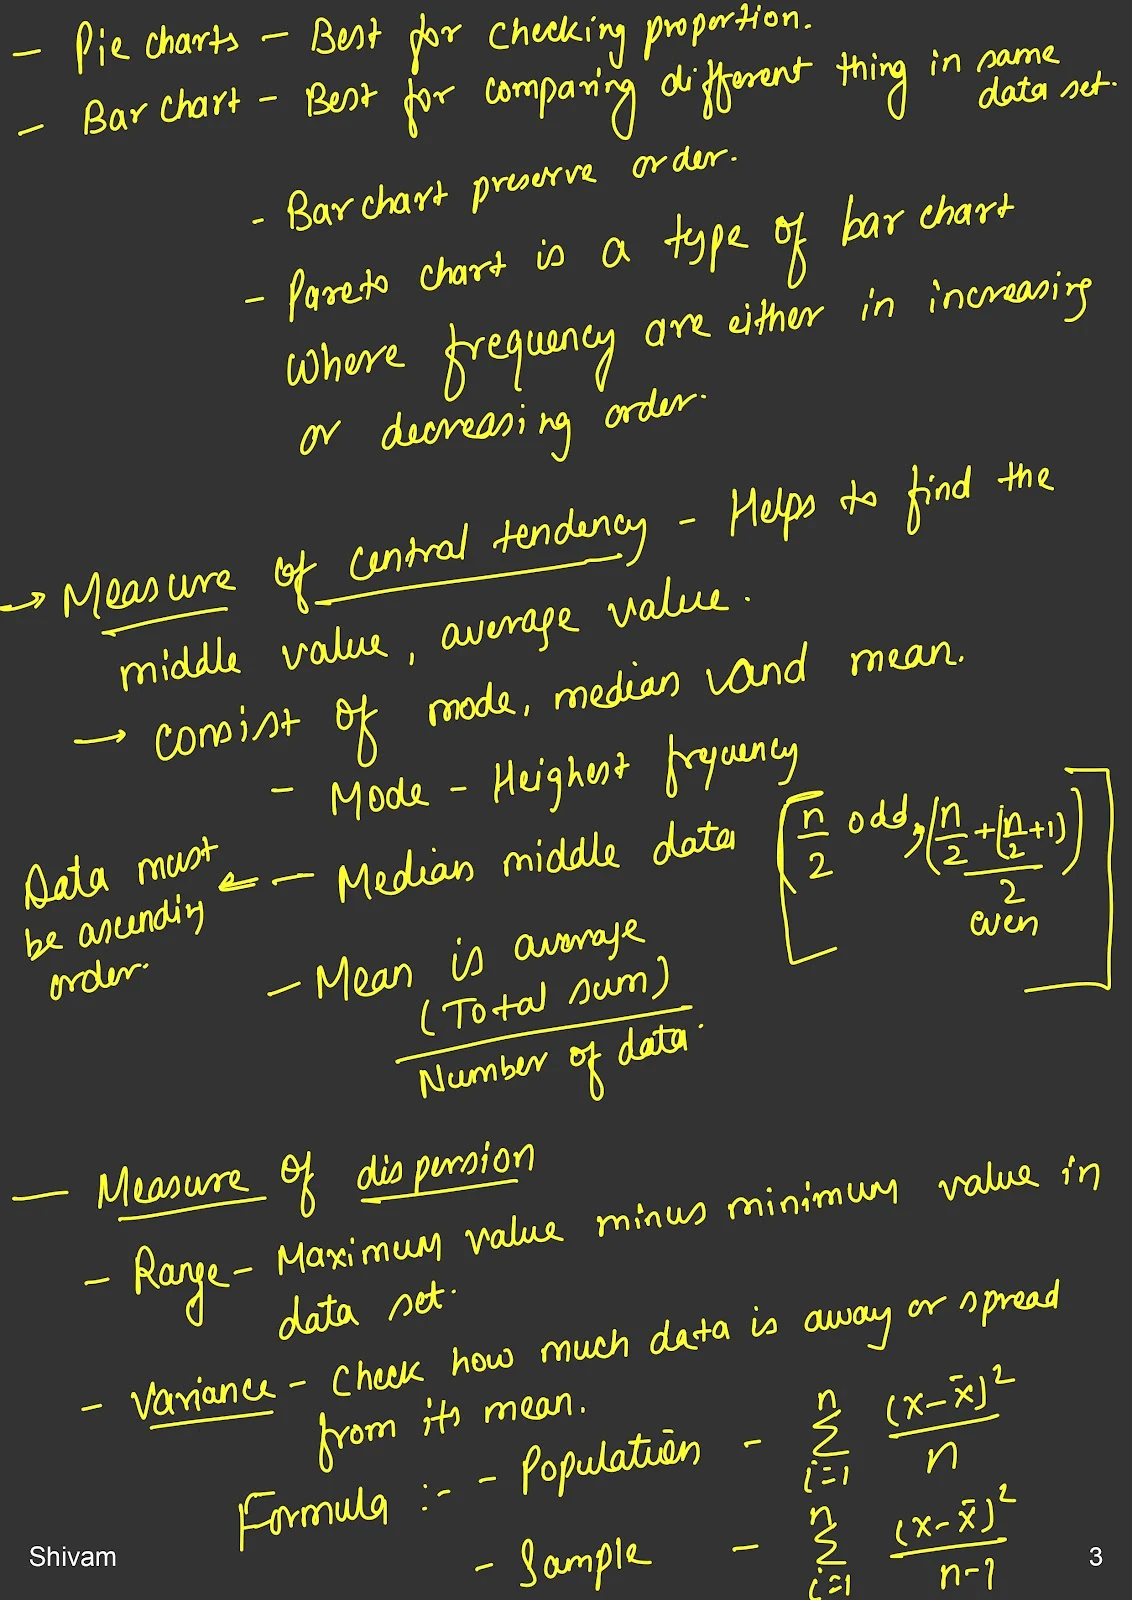 - Pie charts - Best for checking proportion.
- Bar chart - Best for comparing different thing in same
data set.
- Bar chart preserve order.
- Pareto chart is a type of bar chart
where frequency are either in increasing
or decreasing order.
→ Measure of central tendency - Helps to find the
middle value, average value.
→ consist of mode, median and mean.
- Mode - Heighest frequency
- Median middle data [n/2 odd, (n/2 + (n/2 + 1))/2 even]
Data must
be ascending
order.
- Mean is average
(Total sum)
Number of data.
- Measure of dispersion
- Range - Maximum value minus minimum value in
data set.
- Variance - Check how much data is away or spread
from its mean.
Formula :- - Population - n Σ i=1 (x-x̄)²/n
- Sample - n Σ i=1 (x-x̄)²/n-1
Shivam
3